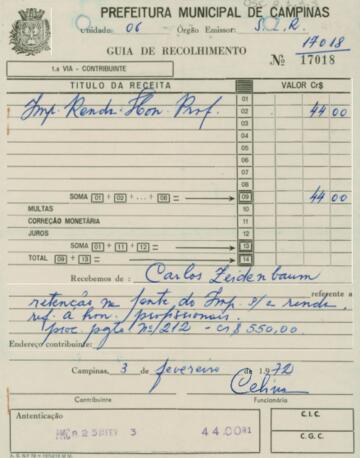 PREFEITURA MUNICIPAL DE CAMPINAS
Unidade: 06 Órgão Emissor: S.I.R.
GUIA DE RECOLHIMENTO
17018
Nº 17018
1.a VIA - CONTRIBUINTE
TITULO DA RECEITA VALOR Cr$
01
Imp. Renda. Hon. Prof. 02 44 00
03
04
05
06
07
08
SOMA 01 + 02 + ... + 08 = 09 44 00
MULTAS 10
CORREÇÃO MONETÁRIA 11
JUROS 12
SOMA 10 + 11 + 12 = 13
TOTAL 09 + 13 = 14
Recebemos de: Carlos Zeidenbaum
referente a
retenção na fonte, do Imp. s/a renda
ref. á hon. profissionais.
proc. pgto nº/212 - Cr$ 550,00.
Endereço contribuinte:
Campinas, 3 de fevereiro de 1.972
Contribuinte Funcionária
Autenticação C.I.C.
3 44.00
C.G.C.